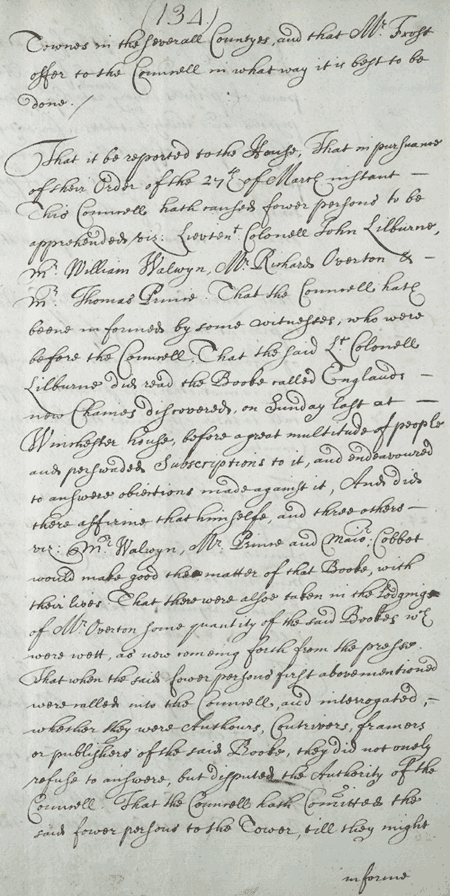 (134)
Townes in the severall Countyes, and that Mr. Frost
offer to the Councell in what way it is best to be
done./
That it be reported to the House, That in pursuance
of their Order of the 27th of March instant —
This Councell hath caused fower persons to be
apprehended viz: Lievtent Colonell John Lilburne,
Mr. William Walwyn, Mr. Richard Overton & —
Mr. Thomas Prince. That the Councell hath
beene informed by some witnesses, who were
before the Councell, That the said Lt Colonell
Lilburne did read the Booke called Englands —
new Chaines discovered, on Sunday last at —
Winchester house, before a great multitude of people
and perswaded Subscriptions to it, and endeavoured
to answere obiections made against it, And did
there affirme that himselfe, and three others —
viz: Mr. Walwyn, Mr. Prince and Maior: Cobbet
would make good the matter of that Booke, with
their lives. That there were alsoe taken in the Lodgings
of Mr. Overton some quantity of the said Bookes wch
were wett, as new comeing forth from the presse.
That when the said fower persons first abovementioned
were called into the Councell, and interrogated, —
whether they were Authours, Contrivers, framers
or publishers of the said Booke, they did not onely
refuse to answere, but disputed the Authority of the
Councell. That the Councell hath Comitted the
said fower persons to the Tower, till they might
informe